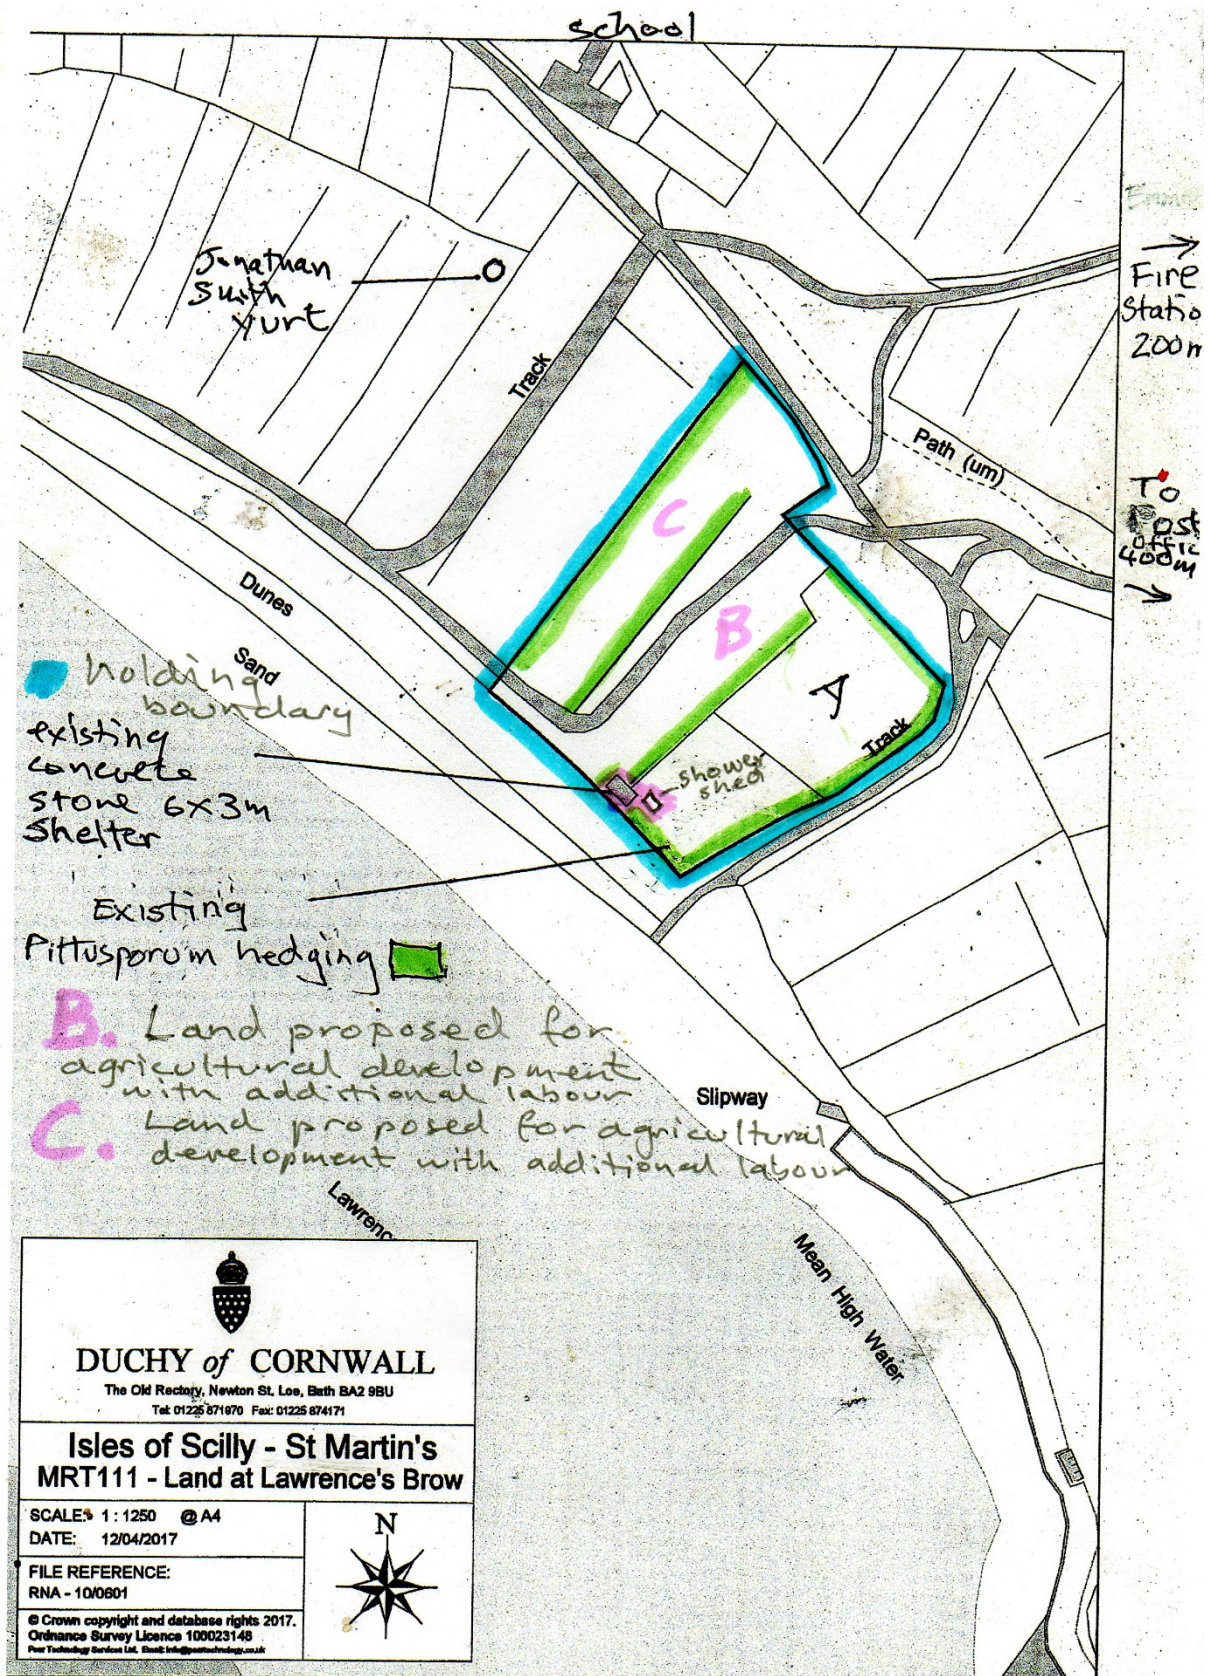 school
Jonathan
Smith
yurt
Track
Fire
Statio
200m
Path (um)
To
Post
offic
400m
Dunes
Sand
C
B
A
Track
shower
shed
holding
boundary
existing
concrete
stone 6x3m
shelter
Existing
Pittusporum hedging
B. Land proposed for
agricultural development
with additional labour
C. Land proposed for agricultural
development with additional labour
Slipway
Lawrenc
Mean High Water
DUCHY of CORNWALL
The Old Rectory, Newton St. Loe, Bath BA2 9BU
Tel: 01225 871970 Fax: 01225 874171
Isles of Scilly - St Martin's
MRT111 - Land at Lawrence's Brow
SCALE: 1 : 1250 @ A4
DATE: 12/04/2017
FILE REFERENCE:
RNA - 10/0601
N
© Crown copyright and database rights 2017.
Ordnance Survey Licence 100023148
Peer Technology Services Ltd. Email: info@peertechnology.co.uk